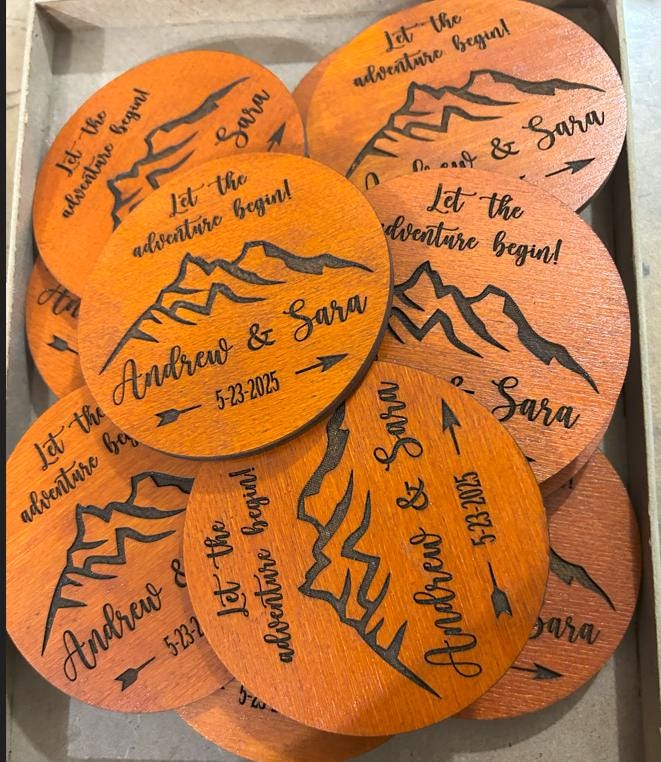 Let the
adventure begin!
Sara
Let the
adventure begin!
Andrew & Sara
Let the
adventure begin!
Andrew & Sara
5-23-2025
Let the
adventure begin!
& Sara
An
Let the
adventure beg
Andrew &
5-23-2
Let the
adventure begin!
Andrew & Sara
5-23-2025
Sara
5-23